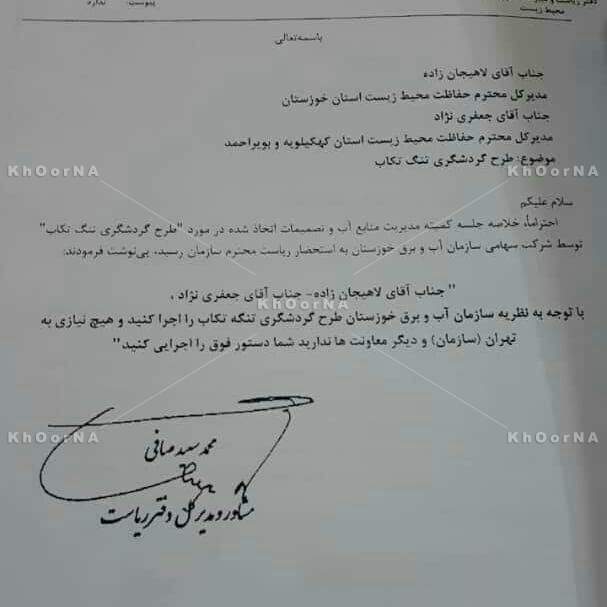 دفتر ریاست و
پیوست: ندارد
محیط زیست
باسمه‌تعالی
جناب آقای لاهیجان زاده
مدیرکل محترم حفاظت محیط زیست استان خوزستان
جناب آقای جعفری نژاد
مدیرکل محترم حفاظت محیط زیست استان کهگیلویه و بویراحمد
موضوع: طرح گردشگری تنگ تکاب
KhOorNA KhOorNA
سلام علیکم
احتراماً، خلاصه جلسه کمیته مدیریت منابع آب و تصمیمات اتخاذ شده در مورد "طرح گردشگری تنگ تکاب"
توسط شرکت سهامی سازمان آب و برق خوزستان به استحضار ریاست محترم سازمان رسید، پی‌نوشت فرمودند:
" جناب آقای لاهیجان زاده- جناب آقای جعفری نژاد ،
KhOorNA
با توجه به نظریه سازمان آب و برق خوزستان طرح گردشگری تنگه تکاب را اجرا کنید و هیچ نیازی به
تهران (سازمان) و دیگر معاونت ها ندارید شما دستور فوق را اجرایی کنید"
KhOorNA KhOorNA
محمد سعید صافی
مشاور و مدیرکل دفتر ریاست